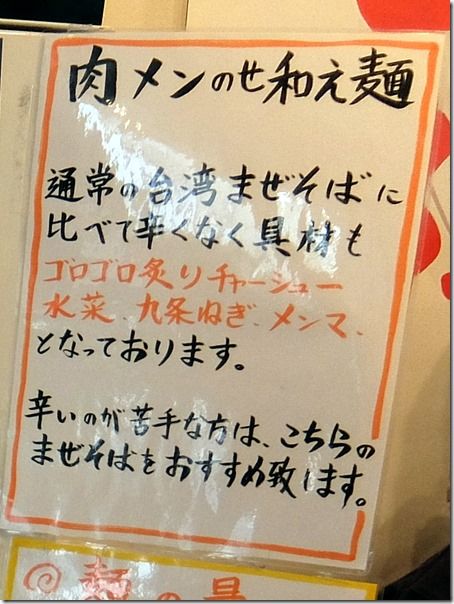 肉メンのせ和え麺
通常の台湾まぜそばに
比べて辛くなく具材も
ゴロゴロ炙りチャーシュー
水菜、九条ねぎ、メンマ、
となっております。
辛いのが苦手な方は、こちらの
まぜそばをおすすめ致します。
麺の量